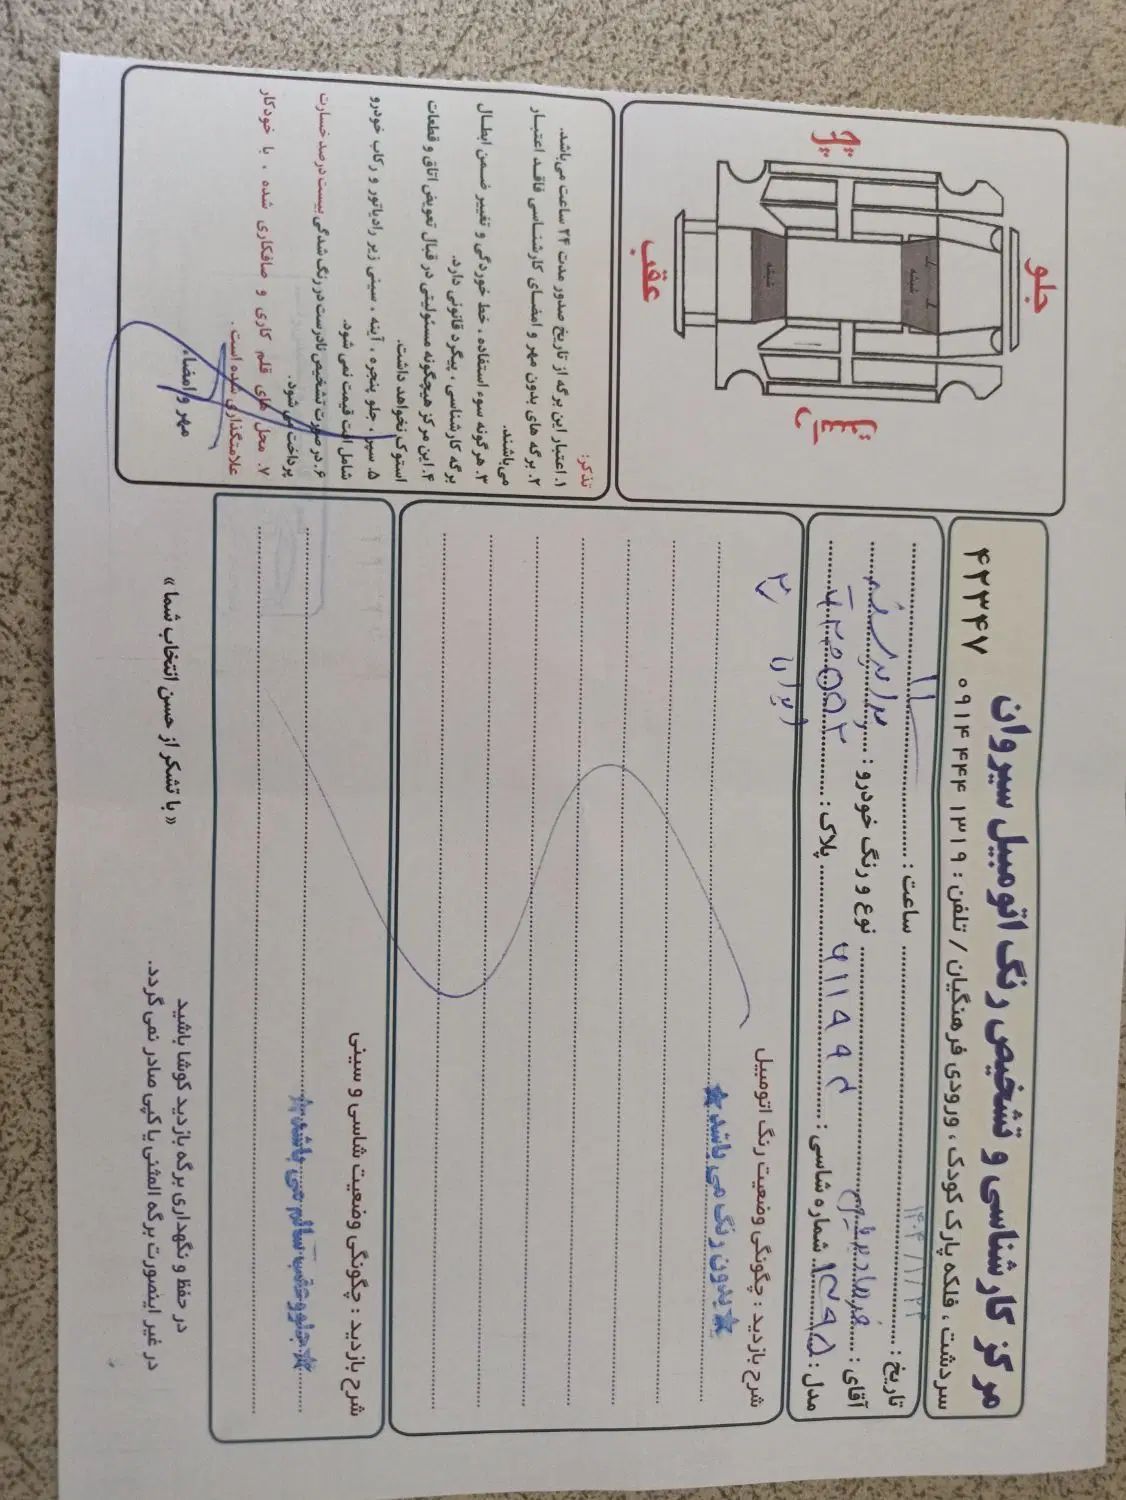 مرکز کارشناسی و تشخیص رنگ اتومبیل سیروان
سردشت ، فلکه پارک کودک ، ورودی فرهنگیان / تلفن : ۱۳۱۹ ۴۴۴ ۰۹۱۴
۴۲۳۴۷
تاریخ : ۱۴۰۴/۱/۲۴ ساعت : ۱۱
آقای : نوع و رنگ خودرو :
مدل : ۱۳۹۵ شماره شاسی : پلاک :
ایران
شرح بازدید : چگونگی وضعیت رنگ اتومبیل
★بدون رنگ می باشد★
شرح بازدید : چگونگی وضعیت شاسی و سینی
★جلو و عقب سالم می باشد★
در حفظ و نگهداری برگه بازدید کوشا باشید
در غیر اینصورت برگه المثنی یا کپی صادر نمی گردد.
«با تشکر از حسن انتخاب شما»
جلو
شیشه
شیشه
عقب
تذکر:
۱. اعتبار این برگه از تاریخ صدور مدت ۲۴ ساعت می‌باشد.
۲. برگه های بدون مهر و امضای کارشناسی فاقد اعتبار
می‌باشند.
۳. هرگونه سوء استفاده ، خط خوردگی و تغییر ضمن ابطال
برگه کارشناسی ، پیگرد قانونی دارد.
۴. این مرکز هیچگونه مسئولیتی در قبال تعویض اتاق و قطعات
استوک نخواهد داشت.
۵. سپر ، جلو پنجره ، آینه ، سینی زیر رادیاتور و رکاب خودرو
شامل افت قیمت نمی شود.
۶. در صورت تشخیص نادرست در رنگ شدگی بیست درصد خسارت
پرداخت می شود.
۷. محل های قلم کاری و صافکاری شده ، با خودکار
علامتگذاری شده است .
مهر و امضاء